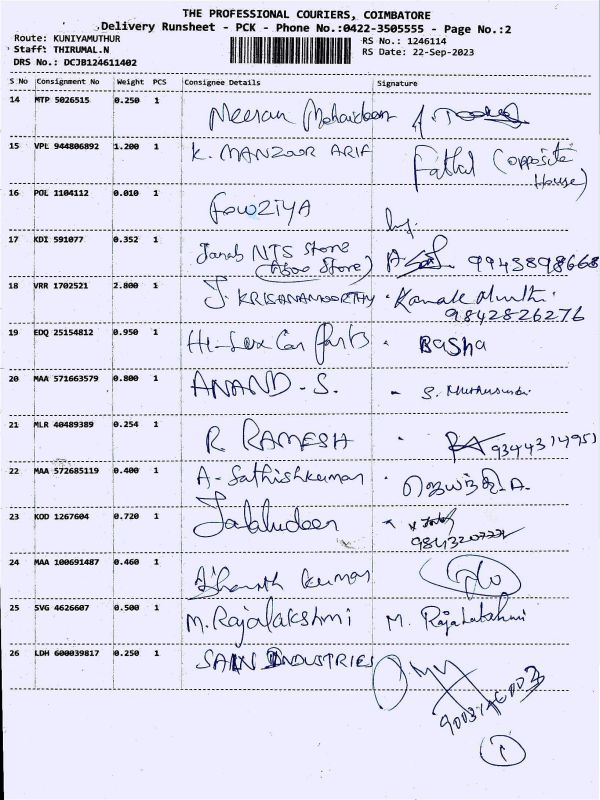 THE PROFESSIONAL COURIERS, COIMBATORE
Delivery Runsheet - PCK - Phone No.:0422-3505555 - Page No.:2
Route: KUNIYAMUTHUR
RS No.: 1246114
Staff: THIRUMAL.N
RS Date: 22-Sep-2023
DRS No.: DCJB124611402
S No Consignment No Weight PCS Consignee Details Signature
14 MTP 5026515 0.250 1 Meeran Mohaideen
15 VPL 944806892 1.200 1 K. MANZOOR ARIF Fathal (opposite
House)
16 POL 1104112 0.010 1 FowZIYA
17 KDI 591077 0.352 1 Janab NTS Store
(Asoo Store) 9943898668
18 VRR 1702521 2.800 1 J. KRISHNAMOORTHY
9842826276
19 EDQ 25154812 0.950 1 Hi-Lex Car Parts BASHA
20 MAA 571663579 0.800 1 ANAND - S.
21 MLR 40489389 0.254 1 R RAMESH 9344314951
22 MAA 572685119 0.400 1 A - Sathishkumar ஜெயந்தி. A.
23 KOD 1267604 0.720 1 Jalaludeen
24 MAA 100691487 0.460 1 kumar
25 SVG 4626607 0.500 1 M. Rajalakshmi M. Rajalakshmi
26 LDH 600039817 0.250 1 SAIN INDUSTRIES